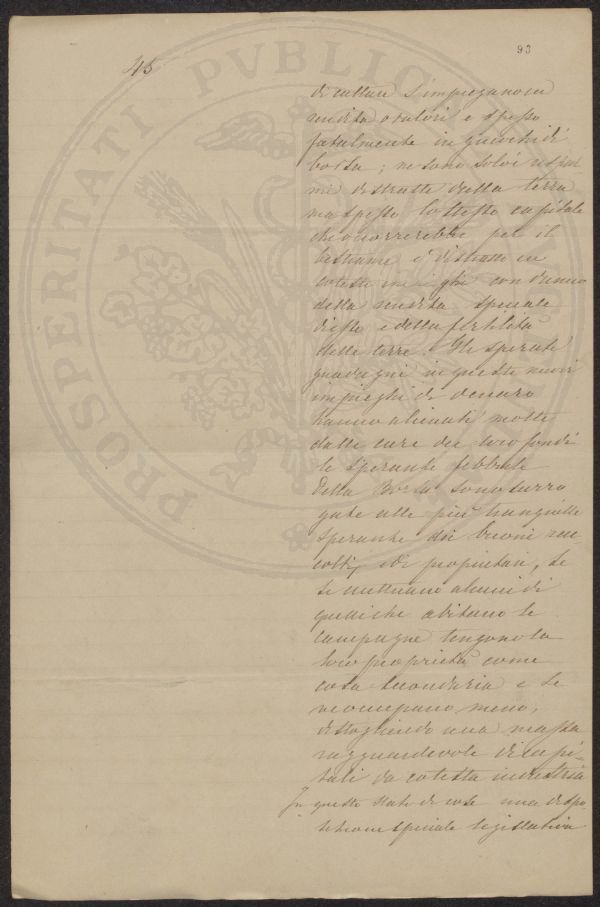 93
45
di culture s'impiegano in
rendita o valori e spesso
fatalmente in giuochi di
borsa; ne sono solo i rispar
mi distratti dalla terra
ma spesso lo stesso capitale
che occorrerebbe per il
bestiame è distratto in
cotesti impieghi con danno
della rendita speciale
d'esso e della fertilità
delle terre. Gli sperati
guadagni in questi nuovi
impieghi di denaro
hanno alienati molti
dalle cure dei loro fondi
le speranze febbrili
della Borsa sono surro
gate alle più tranquille
speranze dei buoni rac-
colti, ed i proprietari, se
si eccettuano alcuni di
quelli che abitano le
campagne tengono la
loro proprietà come
cosa secondaria e se
ne occupano meno,
distogliendo una massa
ragguardevole di capi-
tali da cotesta industria
In questo stato di cose una dispo
sizione speciale legislativa
PROSPERITATI PVBLIC